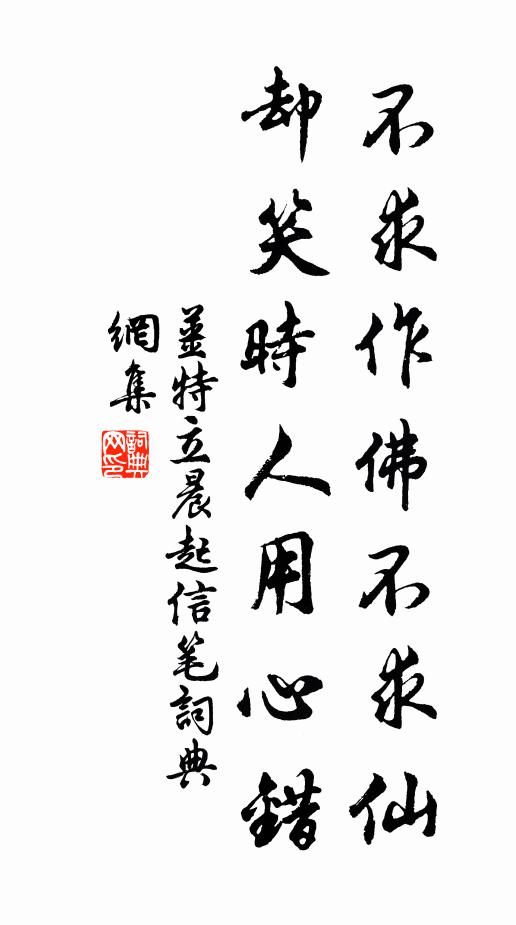 不求作佛不求仙
却笑時人用心錯
薑特立晨起信笔詞典
網集
詞典
网印